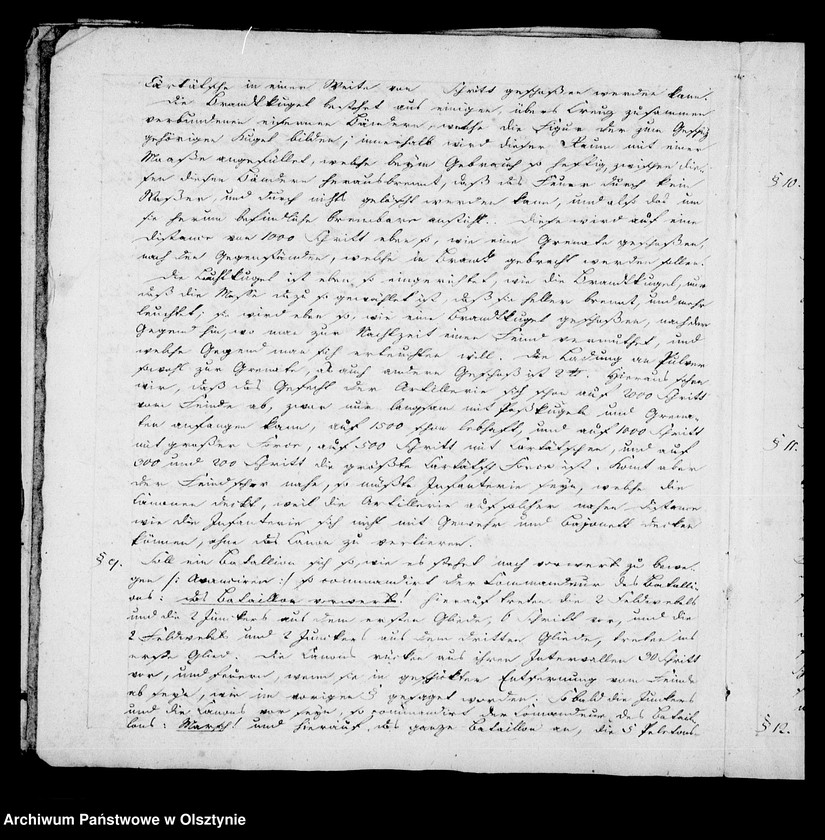 Cartätsche in einer Weite von Schritt geschoßen werden kann.
Die Brandkugel besteht aus einigen, übers Creuz zusammen
verbundenen eisernen Bändern, welche die Figur der zum Geschütz
gehörigen Kugel bilden; innerhalb wird dieser Raum mit einer
Masse angefüllet, welche beym Gebrauch so heftig, zwischen die-
sen Bändern herausbrennt, daß das Feuer durch kein
Waßer, und durch nichts gelöscht werden kann, und also das um
sie herum befindliche brennbare ansteckt. Diese wird auf eine
Distance von 1000 Schritt eben so, wie eine Grenate geschoßen,
nach den Gegenständen, welche in Brand gebracht werden sollen.
Die Lichtkugel ist eben so eingerichtet wie die Brandkugel, nur
daß die Masse dazu so gewählet ist, daß sie heller brennt, und mehr
leuchtet; sie wird eben so, wie eine Brandkugel geschoßen, nach der
Gegend hin, wo man zur Nachtzeit einen Feind vermuthet, und
welche Gegend man sich erleuchten will. Die Ladung an Pulver
sowohl zur Grenate, als auch andere Geschoß ist 2 tt. Hieraus sehen
wir, daß das Gefecht der Artillerie sich schon auf 2000 Schritt
vom Feinde ab, zwar nur langsam mit Paßkugeln und Grena-
ten anfangen kann, auf 1500 schon lebhaft, und auf 1000 Schritt
mit großer Force, auf 500 Schritt mit Cartätschen, und auf
300 und 200 Schritt die größte Cartätsch Force ist. Komt aber
der Feind sehr nahe, so müßte Infanterie seyn, welche die
Canonen deckt, weil die Artillerie auf solcher nahen Distance
wie die Infanterie sich nicht mit Gewehr und Bajonett decken
können, ohne das Canon zu verlieren.
§ 9. Soll ein Bataillon sich so, wie es stehet nach vorwerts zu bewe-
gen /: Avanciren :/ so commandirt der Commandeur des Batalli-
ons: das Bataillon vorwerts! Hierauf treten die 2 Feldwebels
und die 2 Junckers aus dem ersten Gliede, 6 Schritt vor, und die
2 Feldwebels und 2 Junckers aus dem dritten Gliede, treten ins
erste Glied. Die Canons rücken aus ihren Intervallen 30 Schritt
vor, und feuern, wenn sie in geschickter Entfernung vom Feinde
ab seyn, wie im vorigen § gesaget worden. So bald die Junckers
und die Canons vor seyn, so commandirt der Commandeur des Batail-
lons: Marsch! und hierauf das ganze Bataillon an, die 5 Pelotons
§ 10.
§ 11.
§ 12.
Archiwum Państwowe w Olsztynie